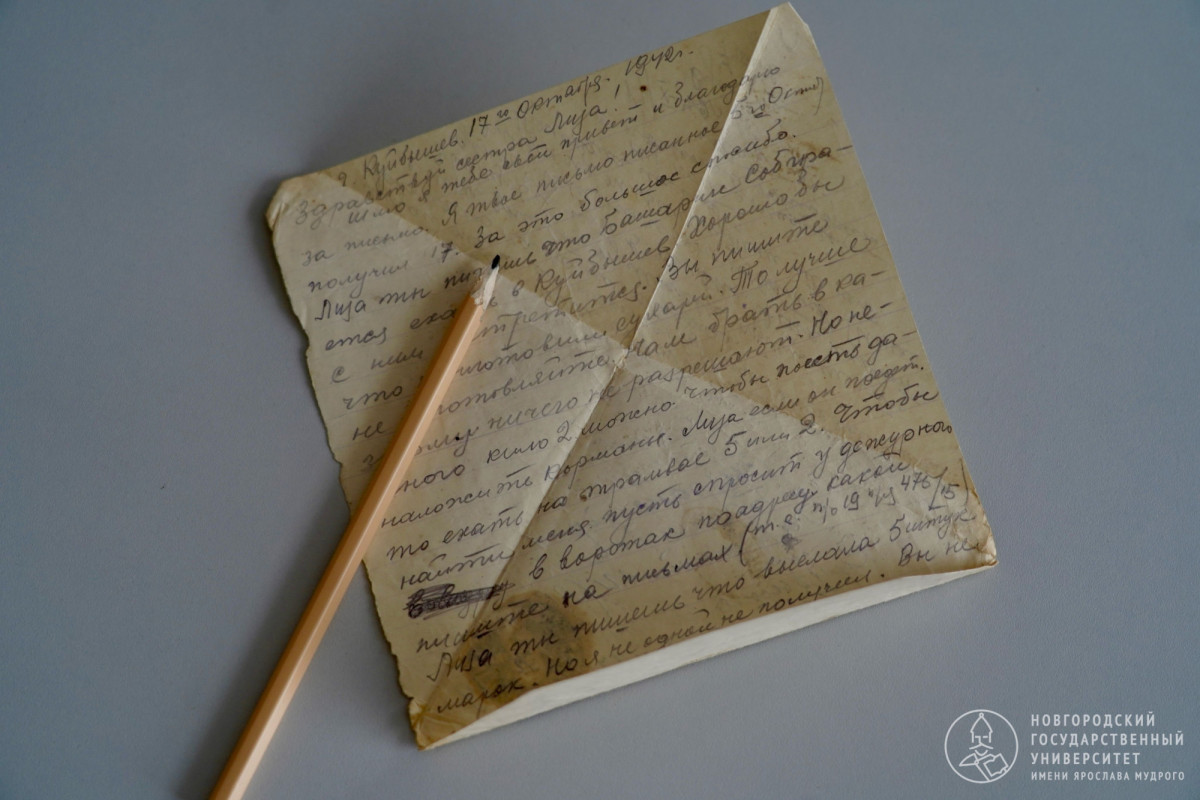 г Куйбышев. 17го Октября. 1942г.
Здравствуй сестра Лиза!
Шлю я тебе свой привет и благодарю
за письмо. Я твое письмо писанное 6го Октяб
получил 17. За это большое спасибо.
Лиза ты что Башарин Собира-
ется в Куйбышев. Хорошо бы
с ним Вы пишите
что сухари. То лучше
не Нам брать в ка-
ничего не разрешают. Но не-
много кило 2 можно чтобы поесть да-
наложить корманы. Лиза если он поедет.
то ехать на трамвае 5 или 2. Чтобы
найти меня пусть спросит у дежурного
в воротах по адресу какой
пишите на письмах (т.е. п/о 19 п/я 476/15)
Лиза ты пишешь что выслала 5 штук
марок. Но я не одной не получил. Вы не
НОВГОРОДСКИЙ
ГОСУДАРСТВЕННЫЙ
УНИВЕРСИТЕТ
ИМЕНИ ЯРОСЛАВА МУДРОГО